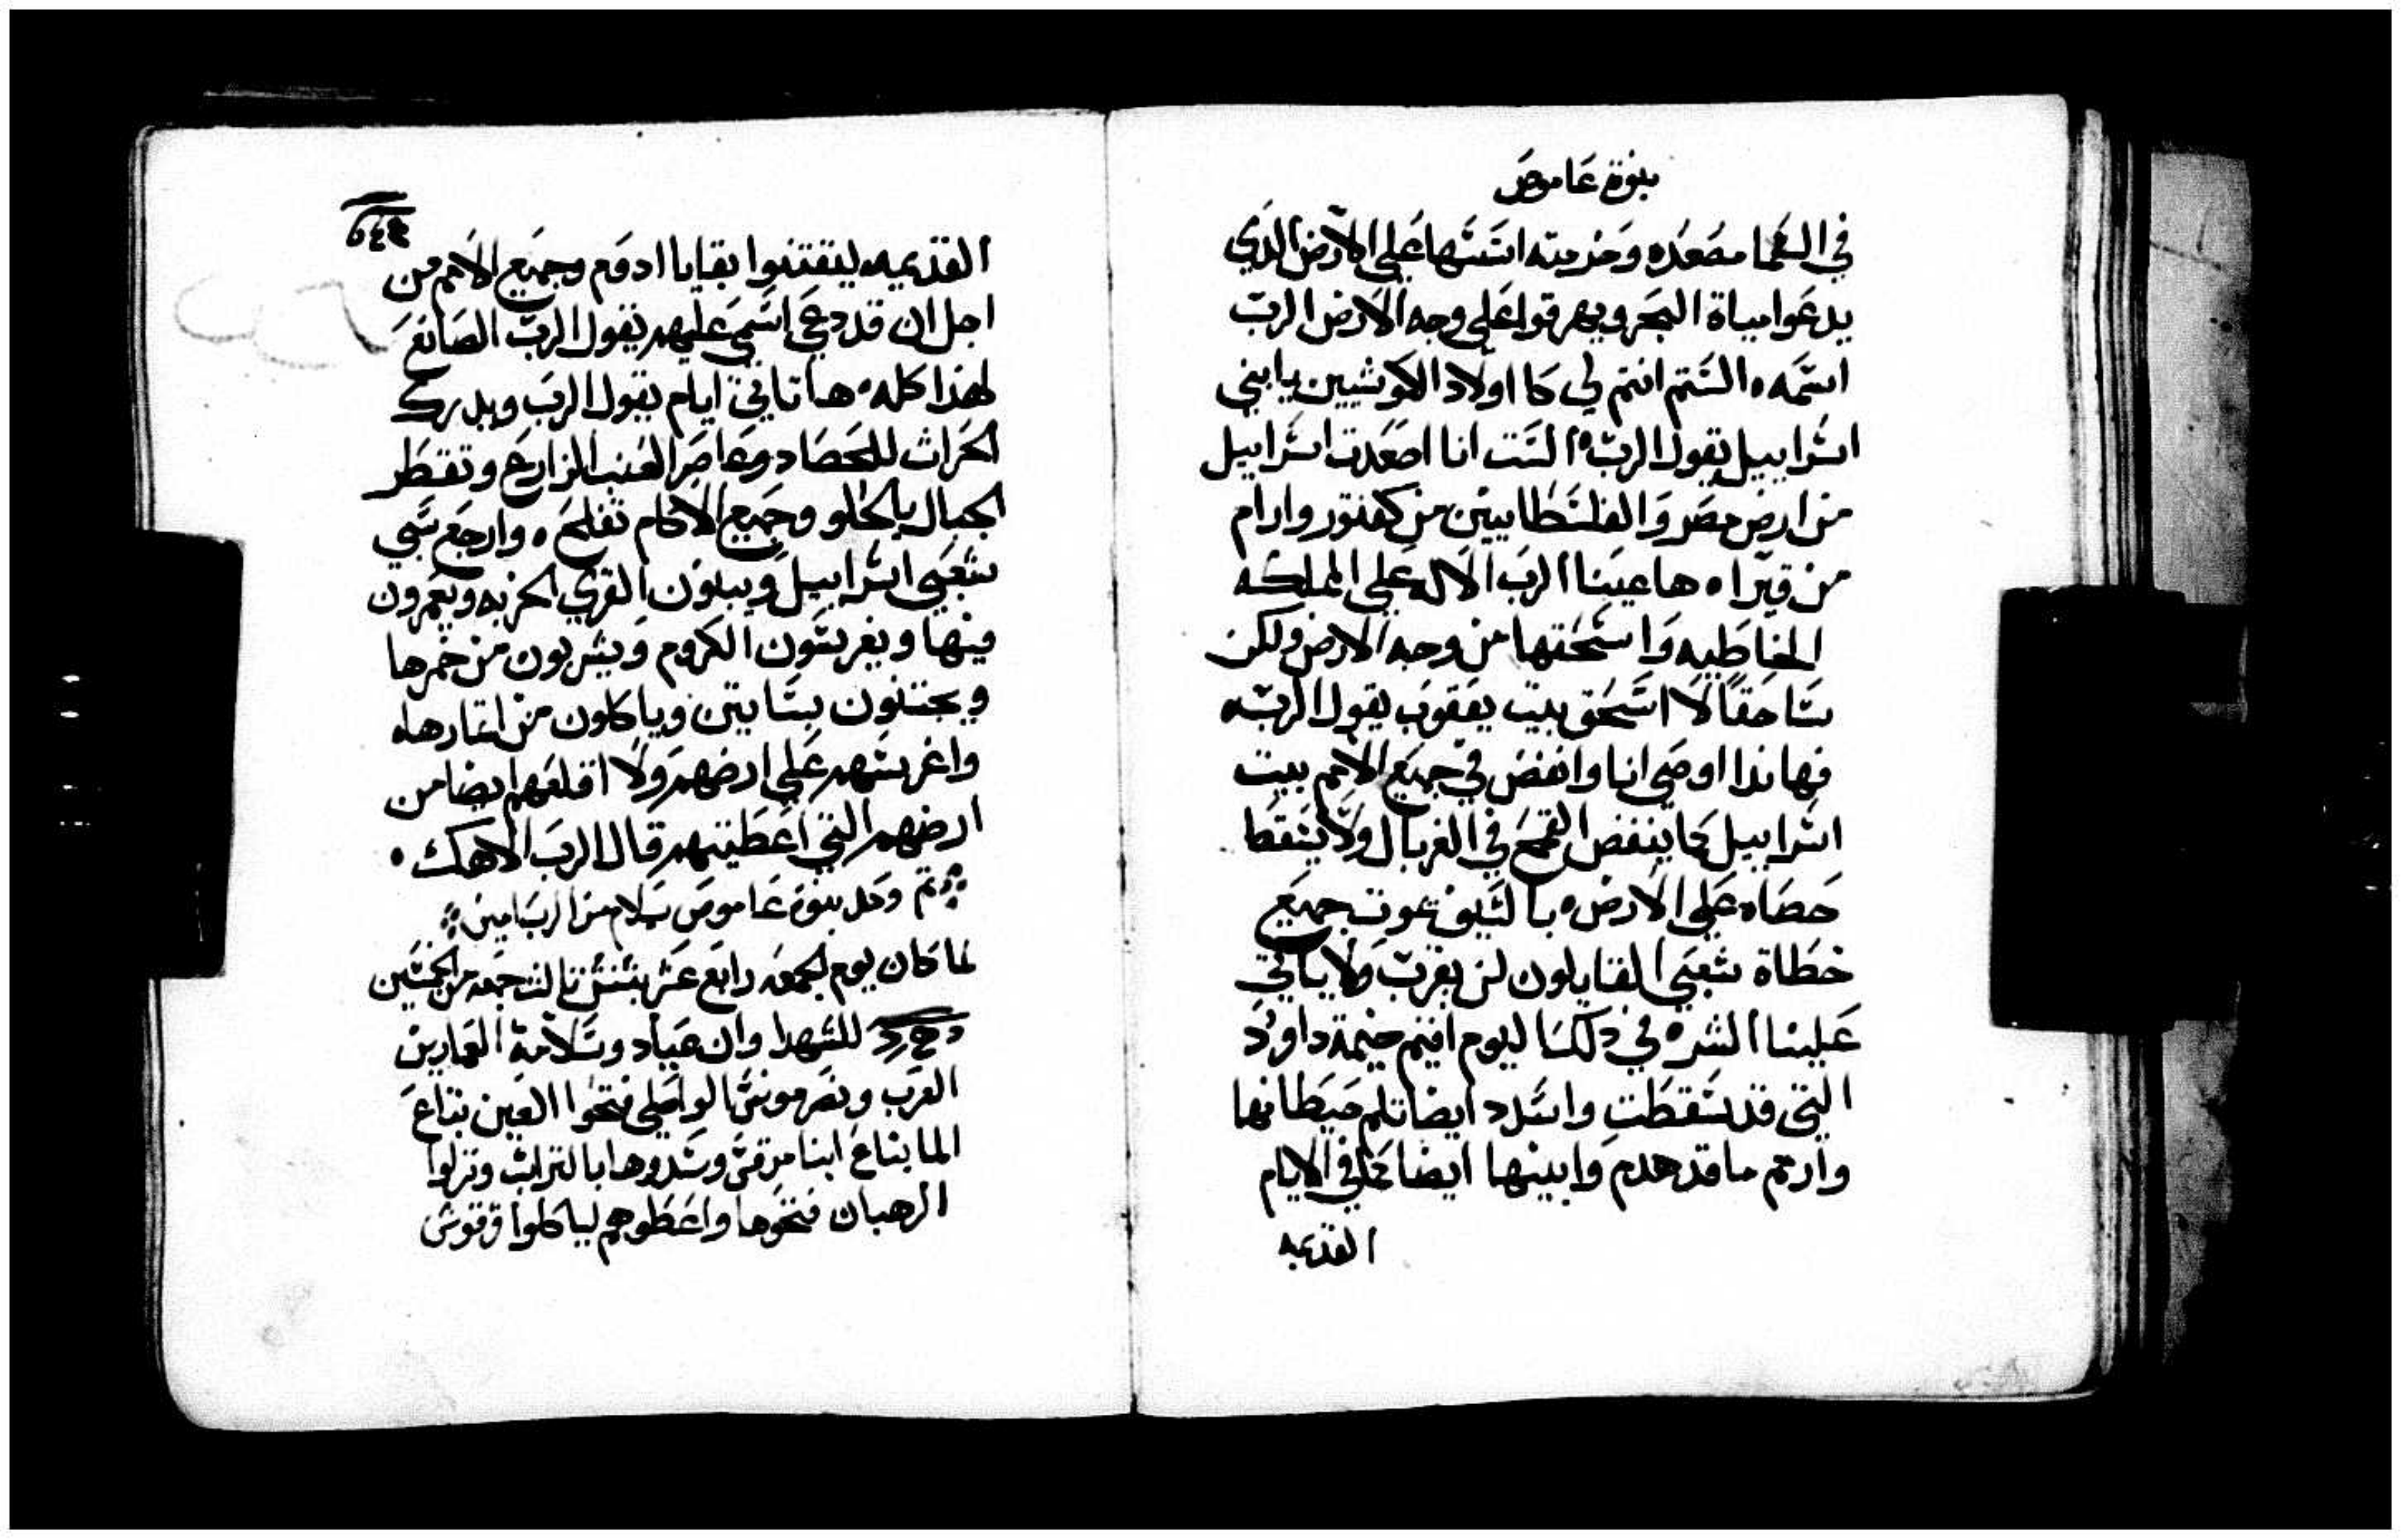 نبوة عاموص
في السما مصعده وحزمته اسسها على الارض الذي
يدعوا مياة البحر ويهرقوا على وجه الارض الرب
اسمه ه الستم انتم لي كا اولاد الكوشيين يا بني
اسراييل يقول الرب ه الست انا اصعدت اسراييل
من ارض مصر والفلسطانيين من كفتور وارام
من قيرا ه ها عينا الرب الاله على المملكه
الخاطيه واسحقها من وجه الارض ولكن
سا حقا لا اسحق بيت يعقوب يقول الرب ه
فها نذا اوصي انا وانفض في جميع الامم بيت
اسراييل كما ينفض القمح في الغربال ولا يسقط
حصاه على الارض ه بالسيف يموت جميع
خطاة شعبي القايلون لن يقرب ولا ياتي
علينا الشر ه في ذلك اليوم اقيم خيمة داوود
التي قد سقطت واسدد ايضا ثلم حيطانها
وارمم ما قد هدم وابنيها ايضا كما في الايام
القديمه
القديمه ليقتنوا بقايا ادوم وجميع الامم من
اجل ان قد دعي اسمي عليهم يقول الرب الصانع
لهذا كله ه ها تاتي ايام يقول الرب ويدرك
الحراث للحصاد وعاصر العنب الزارع وتقطر
الجبال بالحلو وجميع الاكام تفلح ه وارجع سبي
شعبي اسراييل ويبنون القرى الخربه ويعمرون
فيها ويغرسون الكروم ويشربون من خمرها
ويجتنون بساتين وياكلون من اتمارها ه
واغرسهم على ارضهم ولا اقلعهم ايضا من
ارضهم التي اعطيتهم قال الرب الاهك ه
تم وكمل نبوة عاموص بسلام من الرب امين
لما كان يوم الجمعه رابع عشر بشنس تالت جمعه من الخمسين
للشهدا وان عياد وسلامة العمارين
العرب ونصر موسى الواصلي فتحوا العين بتاع
الما بتاع ابنا مرقس وسدوها بالتراب ونزلوا
الرهبان فتحوها واعطوهم لياكلوا